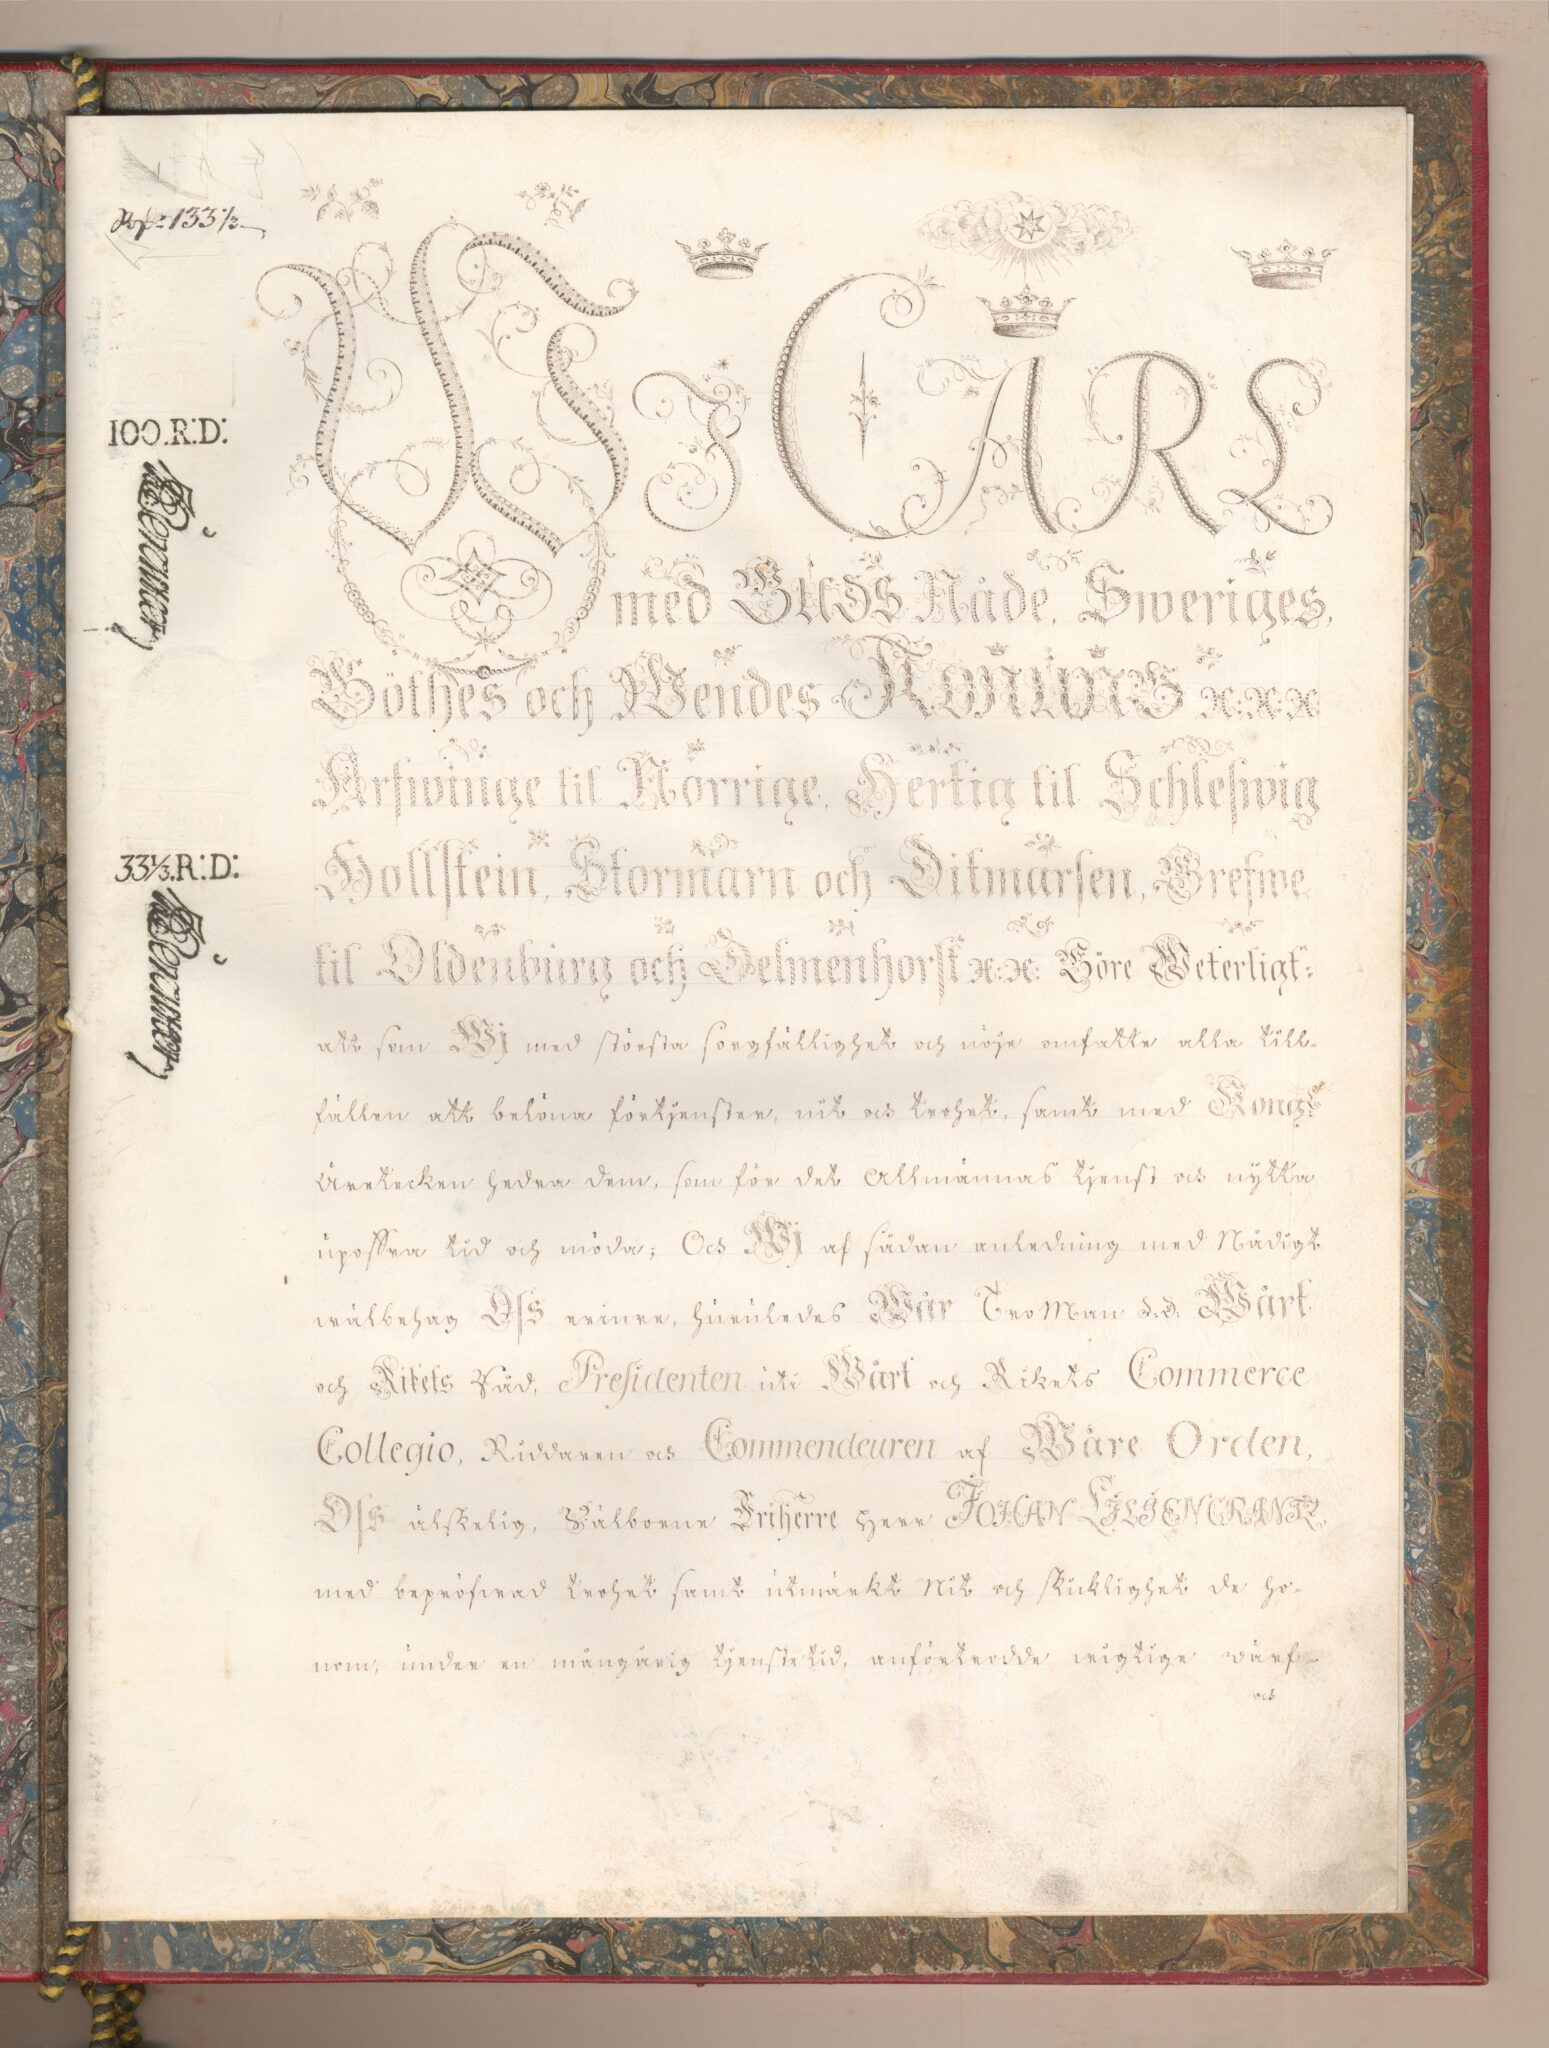 133 1/3
100.R:D:
33 1/3.R:D:
Wj CARL
med GUDS Nåde, Sweriges,
Göthes och Wendes KONUNG &:&:&:
Arfwinge til Norrige, Hertig til Schleswig
Hollstein, Stormarn och Ditmarsen, Grefwe
til Oldenburg och Delmenhorst &:&: Göre Weterligt:
att som Wj med största sorgfällighet och nöje omfatte alla till-
fällen att belöna förtjenster, nit och trohet, samt med Kongl:
äretecken hedra dem, som för det Allmännas tjenst och nytta
upoffra tid och möda; Och Wj af sådan anledning med Nådigt
wälbehag Oss erinre, huruledes Wår Tro Man d:d: Wårt
och Rikets Råd, Presidenten uti Wårt och Rikets Commerce
Collegio, Riddaren och Commendeuren af Wåre Orden,
Oss älskelig, Wälborne Friherre Herr JOHAN LILJENCRANTZ,
med bepröfwad trohet samt utmärkt Nit och skicklighet de ho-
nom, under en mångårig tjenstetid, anförtrodde wigtige wärf
och